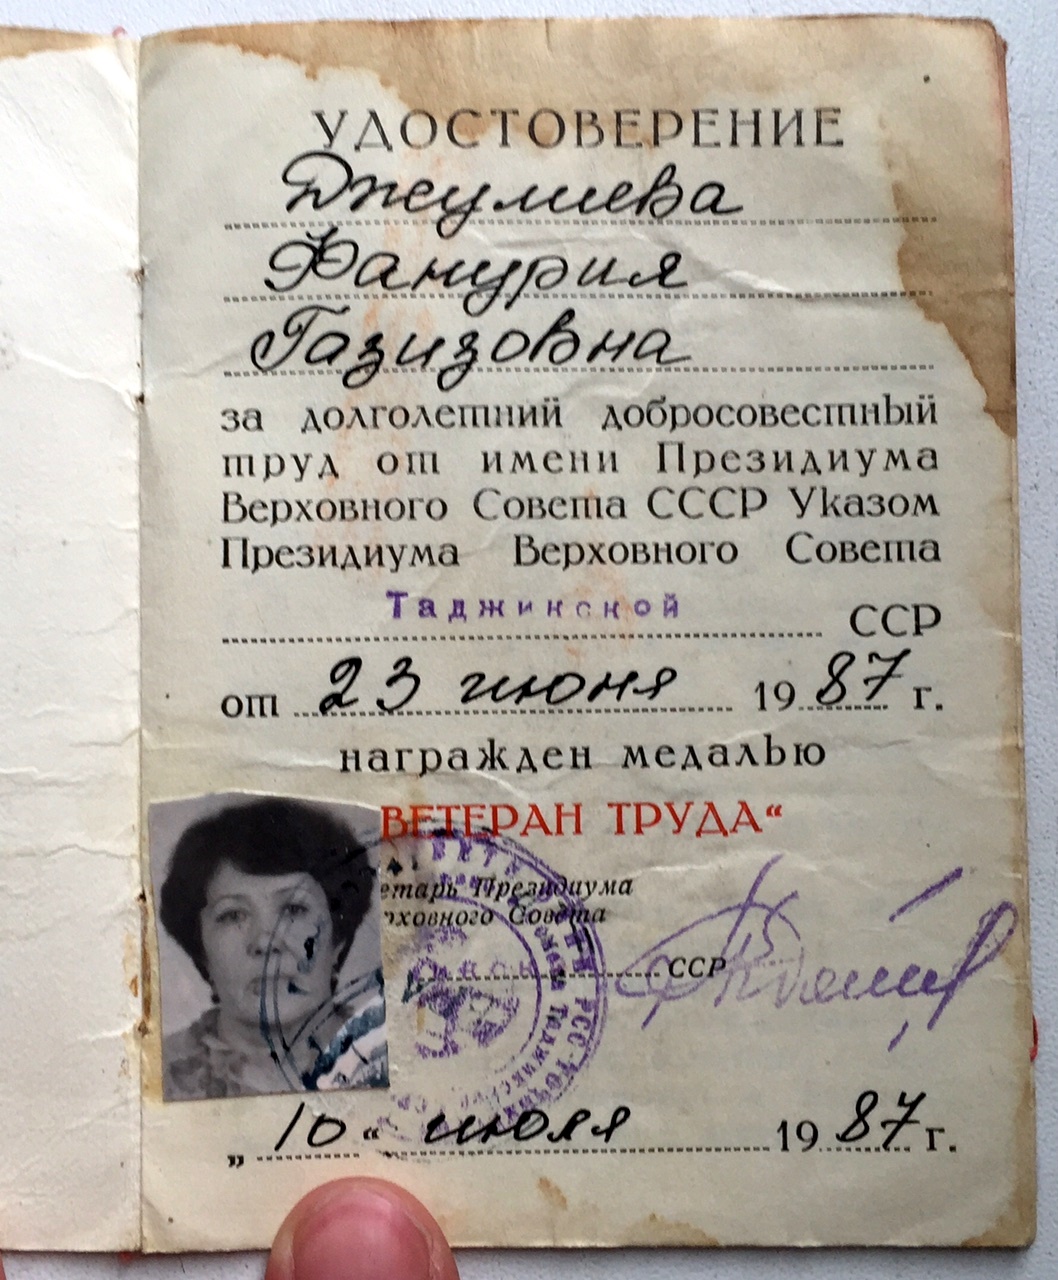 УДОСТОВЕРЕНИЕ
Джумиева
Фанурия
Газизовна
за долголетний добросовестный
труд от имени Президиума
Верховного Совета СССР Указом
Президиума Верховного Совета
Таджикской ССР
от 23 июня 1987 г.
награжден медалью
ВЕТЕРАН ТРУДА“
Президиума
Совета
ССР
„10“ июля 1987 г.